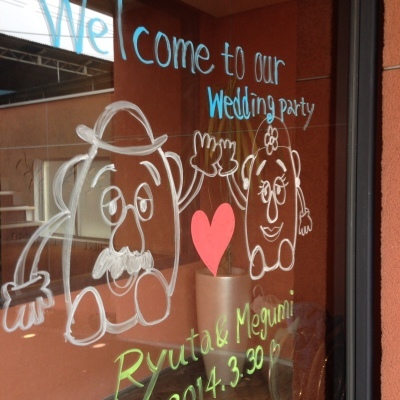 Welcome to our
Wedding party
Ryuta & Megumi
2014.3.30